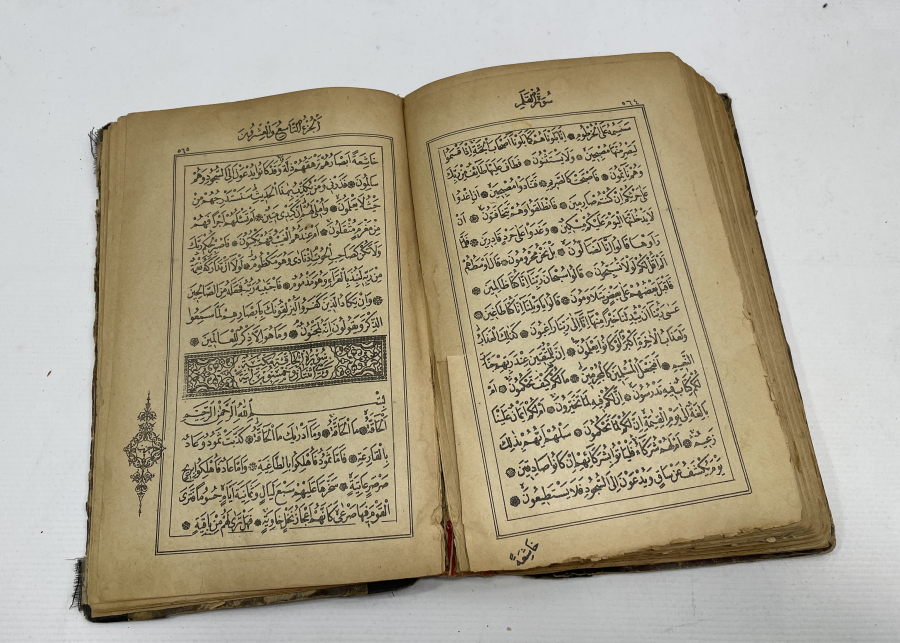 سورة القلم
٥٦٤
سنسمه على الخرطوم ۞ انا بلوناهم كما بلونا اصحاب الجنة اذ اقسموا
ليصرمنها مصبحين ۞ ولا يستثنون ۞ فطاف عليها طائف من ربك
وهم نائمون ۞ فاصبحت كالصريم ۞ فتنادوا مصبحين ۞ ان اغدوا
على حرثكم ان كنتم صارمين ۞ فانطلقوا وهم يتخافتون ۞ ان
لا يدخلنها اليوم عليكم مسكين ۞ وغدوا على حرد قادرين ۞ فلما
راوها قالوا انا لضالون ۞ بل نحن محرومون ۞ قال اوسطهم
الم اقل لكم لولا تسبحون ۞ قالوا سبحان ربنا انا كنا ظالمين ۞
فاقبل بعضهم على بعض يتلاومون ۞ قالوا يا ويلنا انا كنا طاغين ۞
عسى ربنا ان يبدلنا خيرا منها انا الى ربنا راغبون ۞ كذلك العذاب
ولعذاب الاخرة اكبر لو كانوا يعلمون ۞ ان للمتقين عند ربهم جنات
النعيم ۞ افنجعل المسلمين كالمجرمين ۞ ما لكم كيف تحكمون ۞ ام
لكم كتاب فيه تدرسون ۞ ان لكم فيه لما تخيرون ۞ ام لكم ايمان علينا
بالغة الى يوم القيمة ان لكم لما تحكمون ۞ سلهم ايهم بذلك
زعيم ۞ ام لهم شركاء فلياتوا بشركائهم ان كانوا صادقين ۞
يوم يكشف عن ساق ويدعون الى السجود فلا يستطيعون ۞
خاشعة
الجزء التاسع والعشرون
٥٦٥
خاشعة ابصارهم ترهقهم ذلة وقد كانوا يدعون الى السجود وهم
سالمون ۞ فذرني ومن يكذب بهذا الحديث سنستدرجهم من
حيث لا يعلمون ۞ واملي لهم ان كيدي متين ۞ ام تسئلهم اجرا فهم
من مغرم مثقلون ۞ ام عندهم الغيب فهم يكتبون ۞ فاصبر لحكم ربك
ولا تكن كصاحب الحوت اذ نادى وهو مكظوم ۞ لولا ان تداركه نعمة
من ربه لنبذ بالعراء وهو مذموم ۞ فاجتبه ربه فجعله من الصالحين
۞ وان يكاد الذين كفروا ليزلقونك بابصارهم لما سمعوا
الذكر ويقولون انه لمجنون ۞ وما هو الا ذكر للعالمين ۞
سورة الحاقة مكية
وهي اثنتان وخمسون اية
بسم الله الرحمن الرحيم
الحاقة ۞ ما الحاقة ۞ وما ادريك ما الحاقة ۞ كذبت ثمود وعاد
بالقارعة ۞ فاما ثمود فاهلكوا بالطاغية ۞ واما عاد فاهلكوا بريح
صرصر عاتية ۞ سخرها عليهم سبع ليال وثمانية ايام حسوما فترى
القوم فيها صرعى كانهم اعجاز نخل خاوية ۞ فهل ترى لهم من باقية ۞